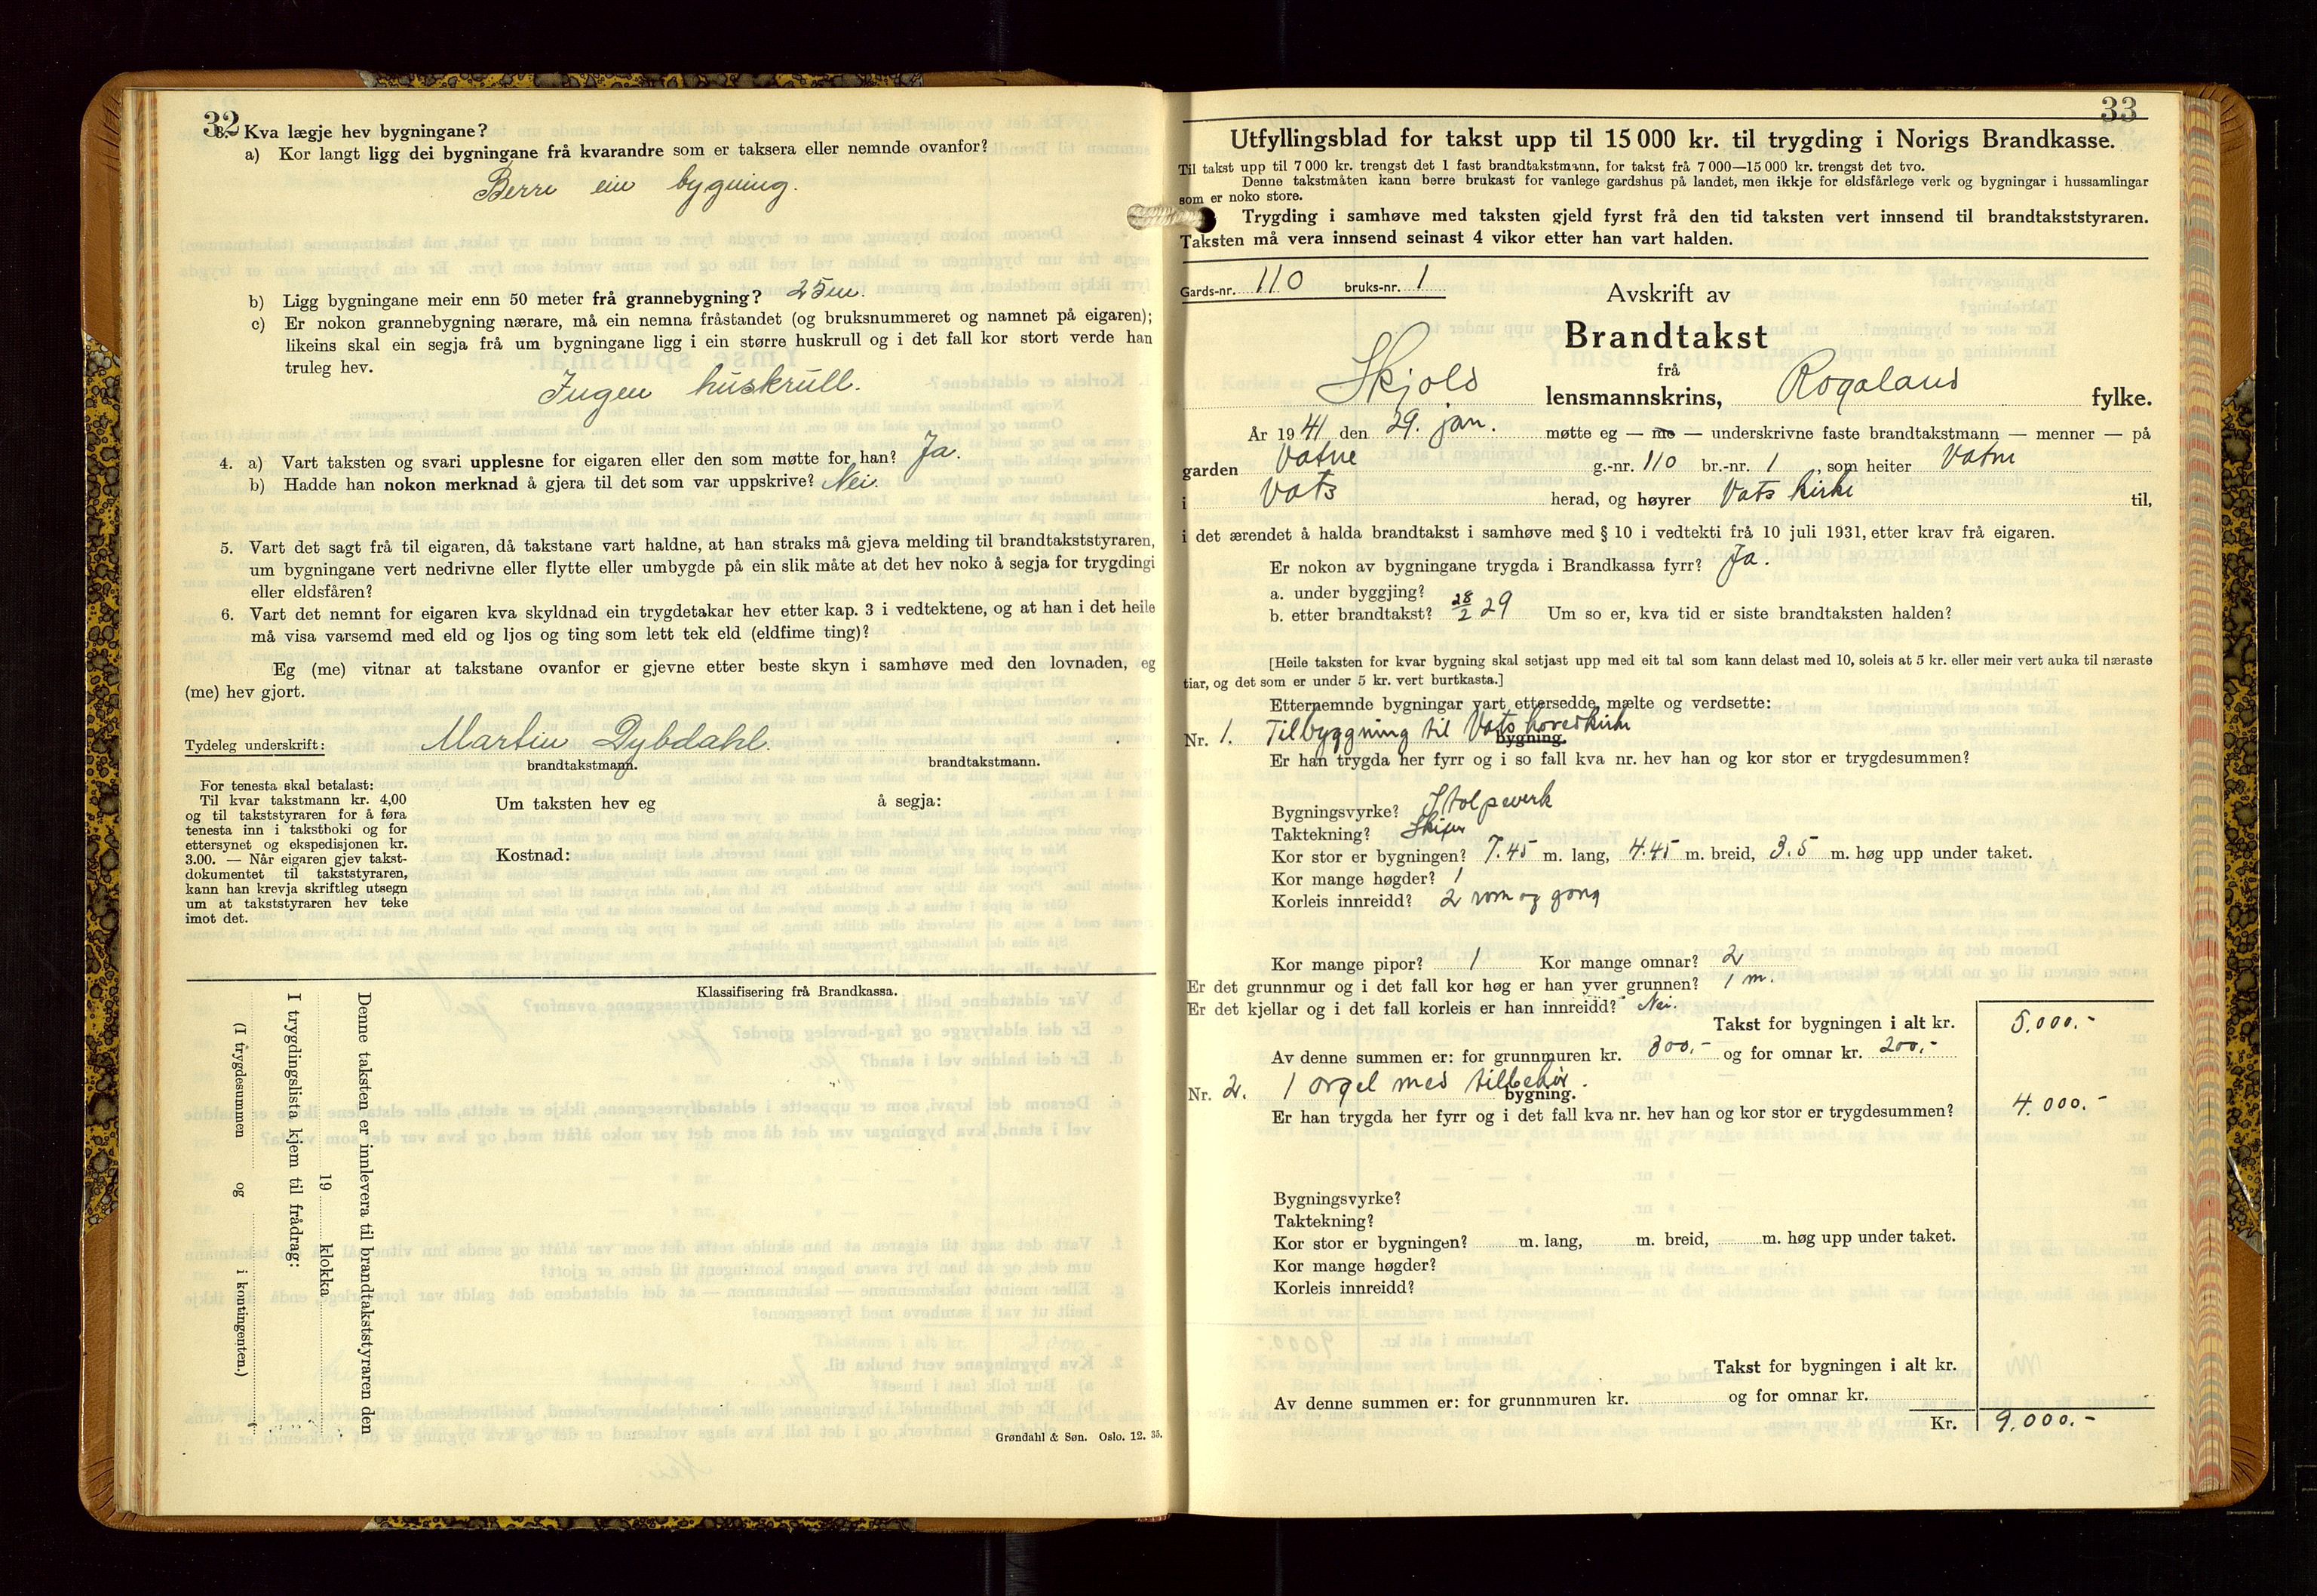 32
3. Kva lægje hev bygningane?
a) Kor langt ligg dei bygningane frå kvarandre som er taksera eller nemnde ovanfor?
Berre ein bygning.
b) Ligg bygningane meir enn 50 meter frå grannebygning? 25m.
c) Er nokon grannebygning nærare, må ein nemna fråstandet (og bruksnummeret og namnet på eigaren);
likeins skal ein segja frå um bygningane ligg i ein større huskrull og i det fall kor stort verde han
truleg hev.
Ingen huskrull.
4. a) Vart taksten og svari upplesne for eigaren eller den som møtte for han? Ja.
b) Hadde han nokon merknad å gjera til det som var uppskrive? Nei.
5. Vart det sagt frå til eigaren, då takstane vart haldne, at han straks må gjeva melding til brandtakststyraren,
um bygningane vert nedrivne eller flytte eller umbygde på ein slik måte at det hev noko å segja for trygdingi
eller eldsfåren?
6. Vart det nemnt for eigaren kva skyldnad ein trygdetakar hev etter kap. 3 i vedtektene, og at han i det heile
må visa varsemd med eld og ljos og ting som lett tek eld (eldfime ting)?
Eg (me) vitnar at takstane ovanfor er gjevne etter beste skyn i samhøve med den lovnaden, eg
(me) hev gjort.
Tydeleg underskrift: Martin Dybdahl.
brandtakstmann. brandtakstmann.
For tenesta skal betalast:
Til kvar takstmann kr. 4,00
og til takststyraren for å føra
tenesta inn i takstboki og for
ettersynet og ekspedisjonen kr.
3.00. — Når eigaren gjev takst-
dokumentet til takststyraren,
kann han krevja skriftleg utsegn
um at takststyraren hev teke
imot det.
Um taksten hev eg å segja:
Kostnad:
Klassifisering frå Brandkassa.
Denne taksten er innlevera til brandtakststyraren den
19 klokka
I trygdingslista kjem til frådrag:
(I trygdesummen og i kontingenten.)
Grøndahl & Søn. Oslo. 12. 35.
33
Utfyllingsblad for takst upp til 15 000 kr. til trygding i Norigs Brandkasse.
Til takst upp til 7 000 kr. trengst det 1 fast brandtakstmann, for takst frå 7 000—15 000 kr. trengst det tvo.
Denne takstmåten kann berre brukast for vanlege gardshus på landet, men ikkje for eldsfårlege verk og bygningar i hussamlingar
som er noko store.
Trygding i samhøve med taksten gjeld fyrst frå den tid taksten vert innsend til brandtakststyraren.
Taksten må vera innsend seinast 4 vikor etter han vart halden.
Gards-nr. 110 bruks-nr. 1
Avskrift av
Brandtakst
frå
Skjold lensmannskrins, Rogaland fylke.
År 1941 den 29. jan. møtte eg — me — underskrivne faste brandtakstmann — menner — på
garden Vatne g.-nr. 110 br.-nr. 1, som heiter Vatne
i Vats herad, og høyrer Vats kirke til,
i det ærendet å halda brandtakst i samhøve med § 10 i vedtekti frå 10 juli 1931, etter krav frå eigaren.
Er nokon av bygningane trygda i Brandkassa fyrr? Ja.
a. under byggjing?
b. etter brandtakst? 28/2 29 Um so er, kva tid er siste brandtaksten halden?
[Heile taksten for kvar bygning skal setjast upp med eit tal som kann delast med 10, soleis at 5 kr. eller meir vert auka til næraste
tiar, og det som er under 5 kr. vert burtkasta.]
Etternemnde bygningar vart ettersedde, mælte og verdsette:
Nr. 1. Tilbyggning til Vats hovedkirke
bygning.
Er han trygda her fyrr og i so fall kva nr. hev han og kor stor er trygdesummen?
Bygningsvyrke? Stolpeverk
Taktekning? Skifer
Kor stor er bygningen? 7.45 m. lang, 4.45 m. breid, 3.5 m. høg upp under taket.
Kor mange høgder? 1
Korleis innreidd? 2 rom og gang
Kor mange pipor? 1 Kor mange omnar? 2
Er det grunnmur og i det fall kor høg er han yver grunnen? 1 m.
Er det kjellar og i det fall korleis er han innreidd? Nei.
Takst for bygningen i alt kr. 5.000.-
Av denne summen er: for grunnmuren kr. 300.- og for omnar kr. 200.-
Nr. 2. 1 orgel med tilbehør.
bygning.
Er han trygda her fyrr og i det fall kva nr. hev han og kor stor er trygdesummen? 4.000.-
Bygningsvyrke?
Taktekning?
Kor stor er bygningen? m. lang, m. breid, m. høg upp under taket.
Kor mange høgder?
Korleis innreidd?
Takst for bygningen i alt kr.
Av denne summen er: for grunnmuren kr. og for omnar kr.
Kr. 9.000.-